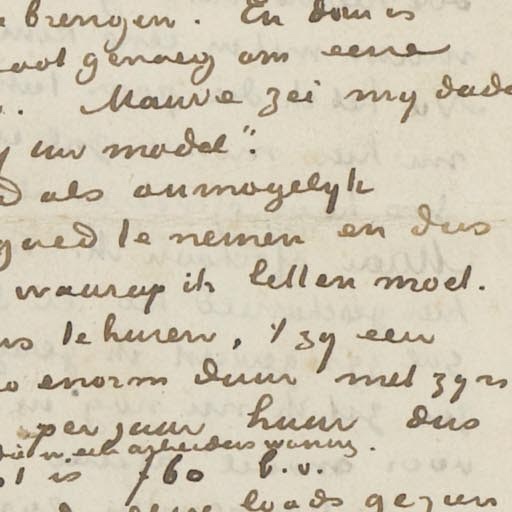 brengen. En dan is
groot genoeg om eene
Mauve zei my dade
uw model".
als onmogelyk
goed te nemen en dus
waarop ik letten moet.
te huren, 't zy een
enorm duur met zyn
per jaar huur dus
die v. een arbeiders woning.
is f 60 b.v.
loods gezien